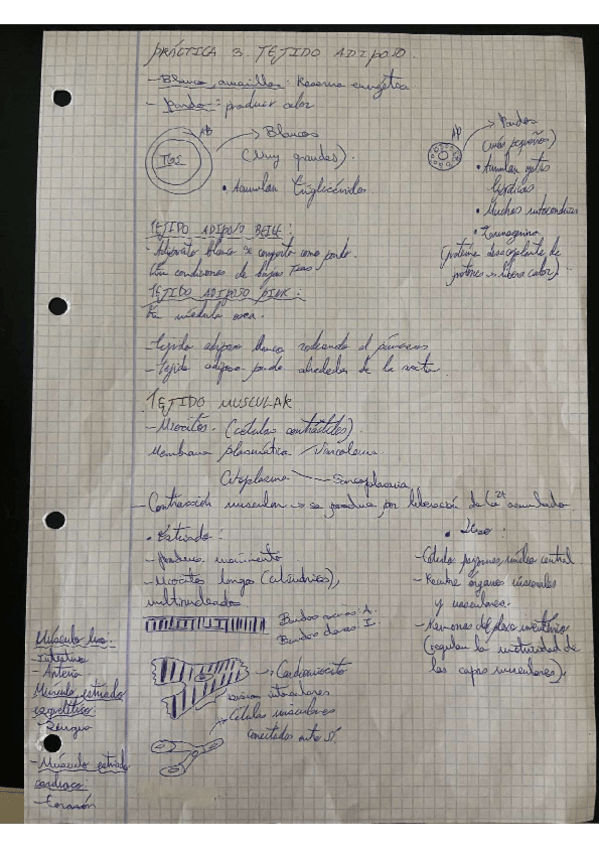 PRÁCTICA 3. TEJIDO ADIPOSO.
- Blanco, amarillo: Reserva energética
- Pardo: producir calor
AB
TGE
Blancos
(Muy grandes).
• Acumulan Triglicéridos
AP
Pardos
(más pequeños)
• Acumulan gotas
lipídicas
• Muchas mitocondrias
• Termogenina
(proteína desacoplante de
protones → libera calor)
TEJIDO ADIPOSO BEIGE:
- Adipocito blanco se comporta como pardo.
En condiciones de bajas Tras
TEJIDO ADIPOSO PINK:
En médula ósea.
- Tejido adiposo blanco rodeando el páncreas
- Tejido adiposo pardo alrededor de la
TEJIDO MUSCULAR
- Miocitos. (células contráctiles).
Membrana plasmática / Sarcolema
Citoplasma Sarcoplasma
- Contracción muscular → se produce por liberación de Ca2+ acumulado
• Estriado:
- Produce movimiento
- Miocitos largos (cilíndricos),
multinucleados
Bandas oscuras A.
Bandas claras I.
-> Cardiomiocito
Discos intercalares
Células musculares
conectadas entre sí
• Liso.
- Células núcleo central
- Recubre órganos viscerales
y vasculares.
- Neuronas del plexo mientérico
(regulan la motricidad de
las capas musculares).
Músculo liso:
- Intestino
- Arteria
Músculo estriado
esquelético:
- Lengua
- Músculo estriado
cardiaco:
- Corazón